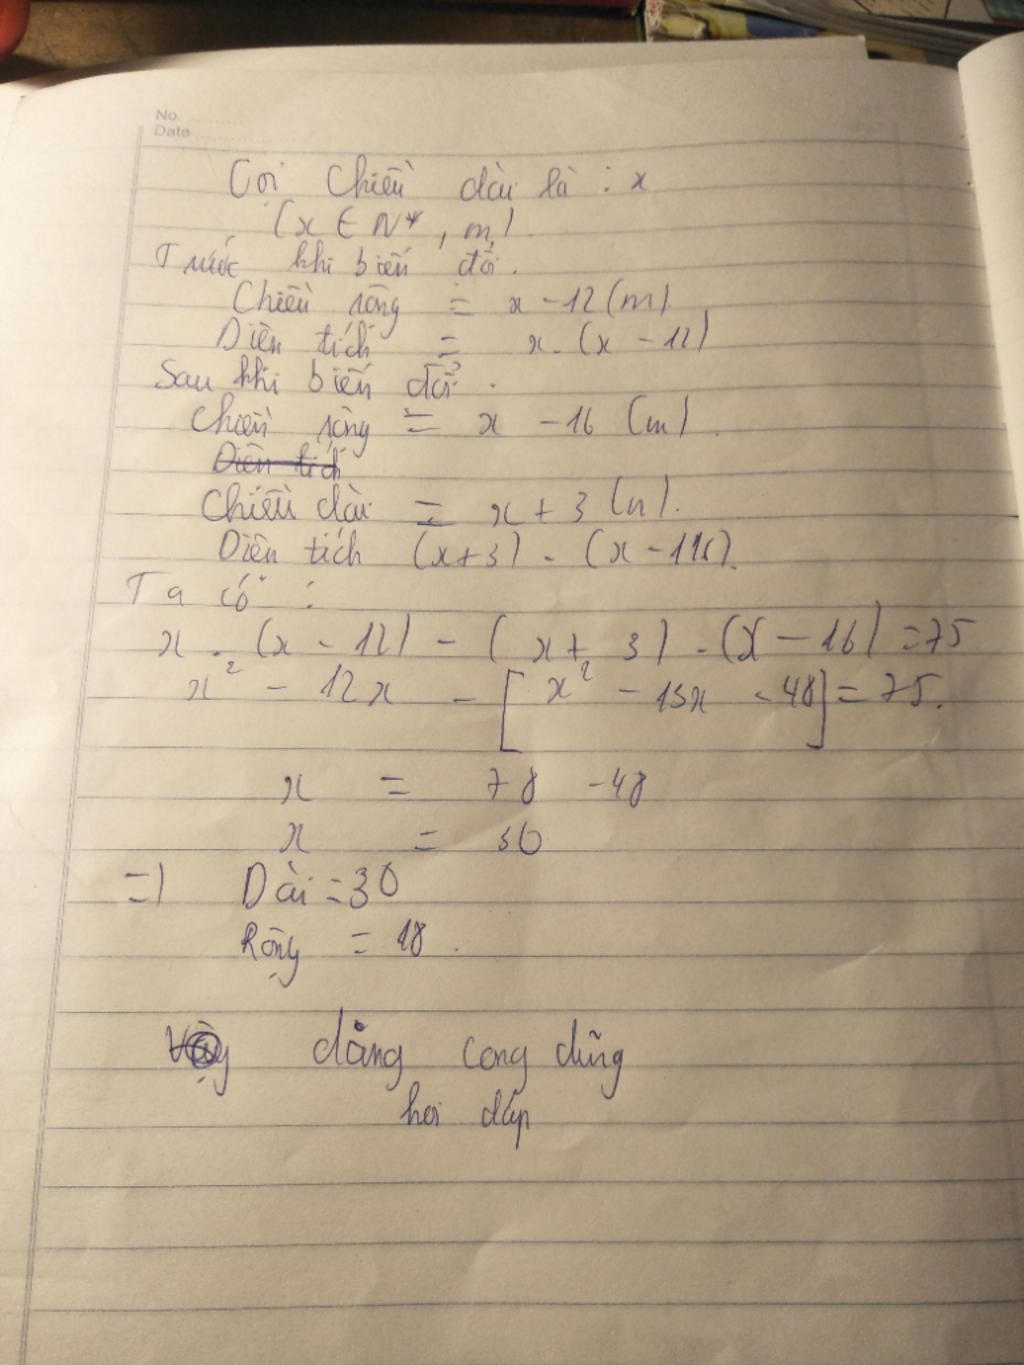 No.
Date
Gọi Chiều dài là : x
(x ∈ N*, m)
Trước khi biến đổi.
Chiều rộng = x - 12 (m)
Diện tích = x . (x - 12)
Sau khi biến đổi .
Chiều rộng = x - 16 (m).
Diện tích
Chiều dài = x + 3 (m).
Diện tích (x+3) . (x - 116).
Ta có :
x . (x - 12) - (x + 3) . (x - 16) = 75
x² - 12x - [x² - 13x - 48] = 75.
x = 78 - 48
x = 30
=) Dài = 30
Rộng = 18 .
Vậy